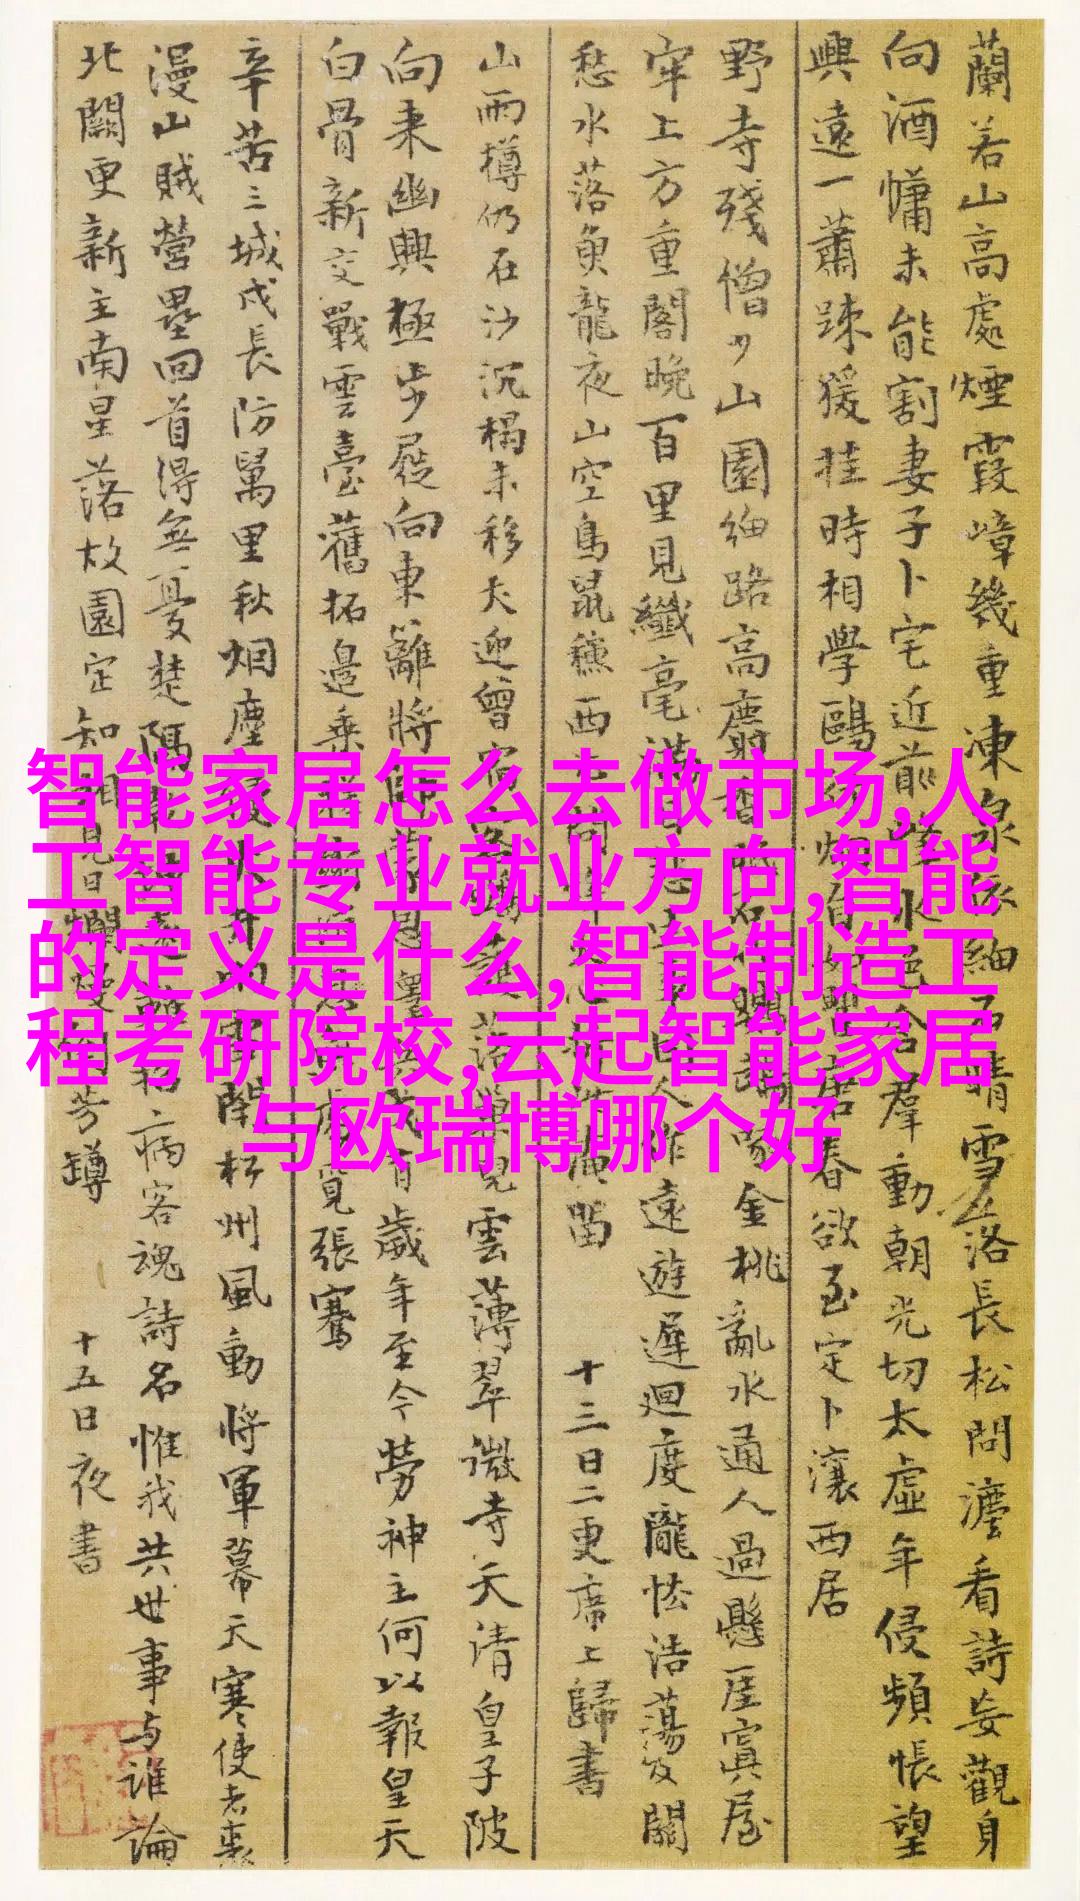 蘭若山高處煙霞嶂幾重凍泉依細石晴雪落長松問灋看詩妄觀身
向酒慵未能割妻子卜宅近前峰水色含羣動朝光切太虛年侵頻悵望
興遠一蕭踈猨挂時相學鷗
居春欲至定卜瀼西居
野寺殘僧少山園細路高麝香
金桃亂水通人過懸崖寘屋
牢上方重閣晚百里見纖毫
人作遠遊遲迴度隴怯浩蕩及關
愁水落魚龍夜山空鳥鼠穐西
留 十三日二更席上歸書
山雨樽仍在沙沉榻未移犬迎曾宿
見雲薄翠微寺天清皇子陂
向来幽興極步屣向東籬將帥蒙恩
歲年至今勞神主何以報皇天
白骨新交戰雲臺舊拓邊乗
覓張騫
辛苦三城戍長防萬里秋烟塵
州風動將軍幕天寒使者裘
漫山賊營壘回首得無憂楚隅
病客魂詩名惟我共世事与誰論
北闕更新主南星落故園定知相見日爛熳
芳罇 十五日夜書
智能家居怎么去做市场,人
工智能专业就业方向,智能
的定义是什么,智能制造工
程考研院校,云起智能家居
与欧瑞博哪个好